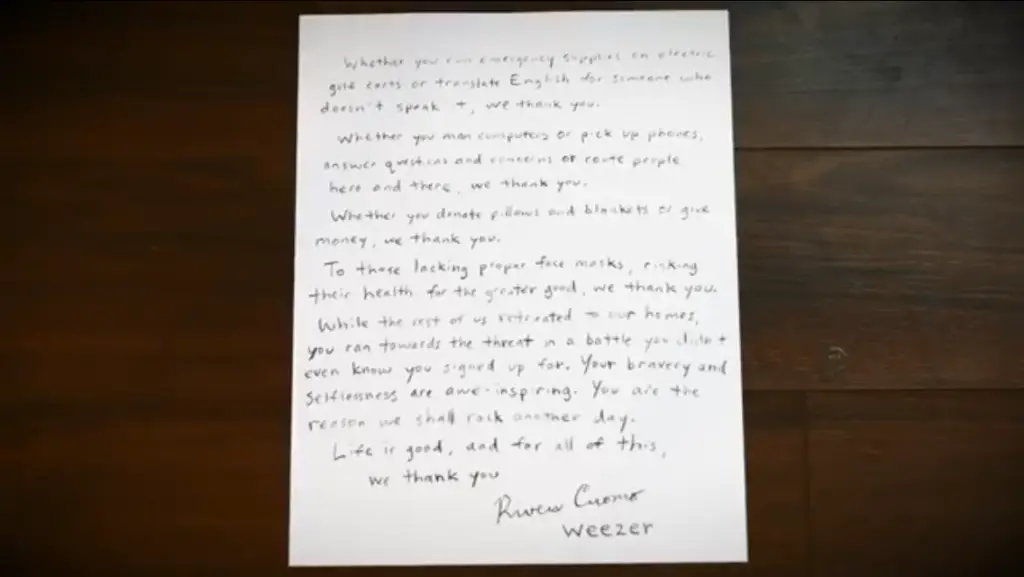 Whether you run emergency supplies on electric
golf carts or translate English for someone who
doesn't speak it, we thank you.
Whether you man computers or pick up phones,
answer questions and concerns or route people
here and there, we thank you.
Whether you donate pillows and blankets or give
money, we thank you.
To those lacking proper face masks, risking
their health for the greater good, we thank you.
While the rest of us retreated to our homes,
you ran towards the threat in a battle you didn't
even know you signed up for. Your bravery and
selflessness are awe-inspiring. You are the
reason we shall rock another day.
Life is good, and for all of this,
we thank you
Rivers Cuomo
weezer